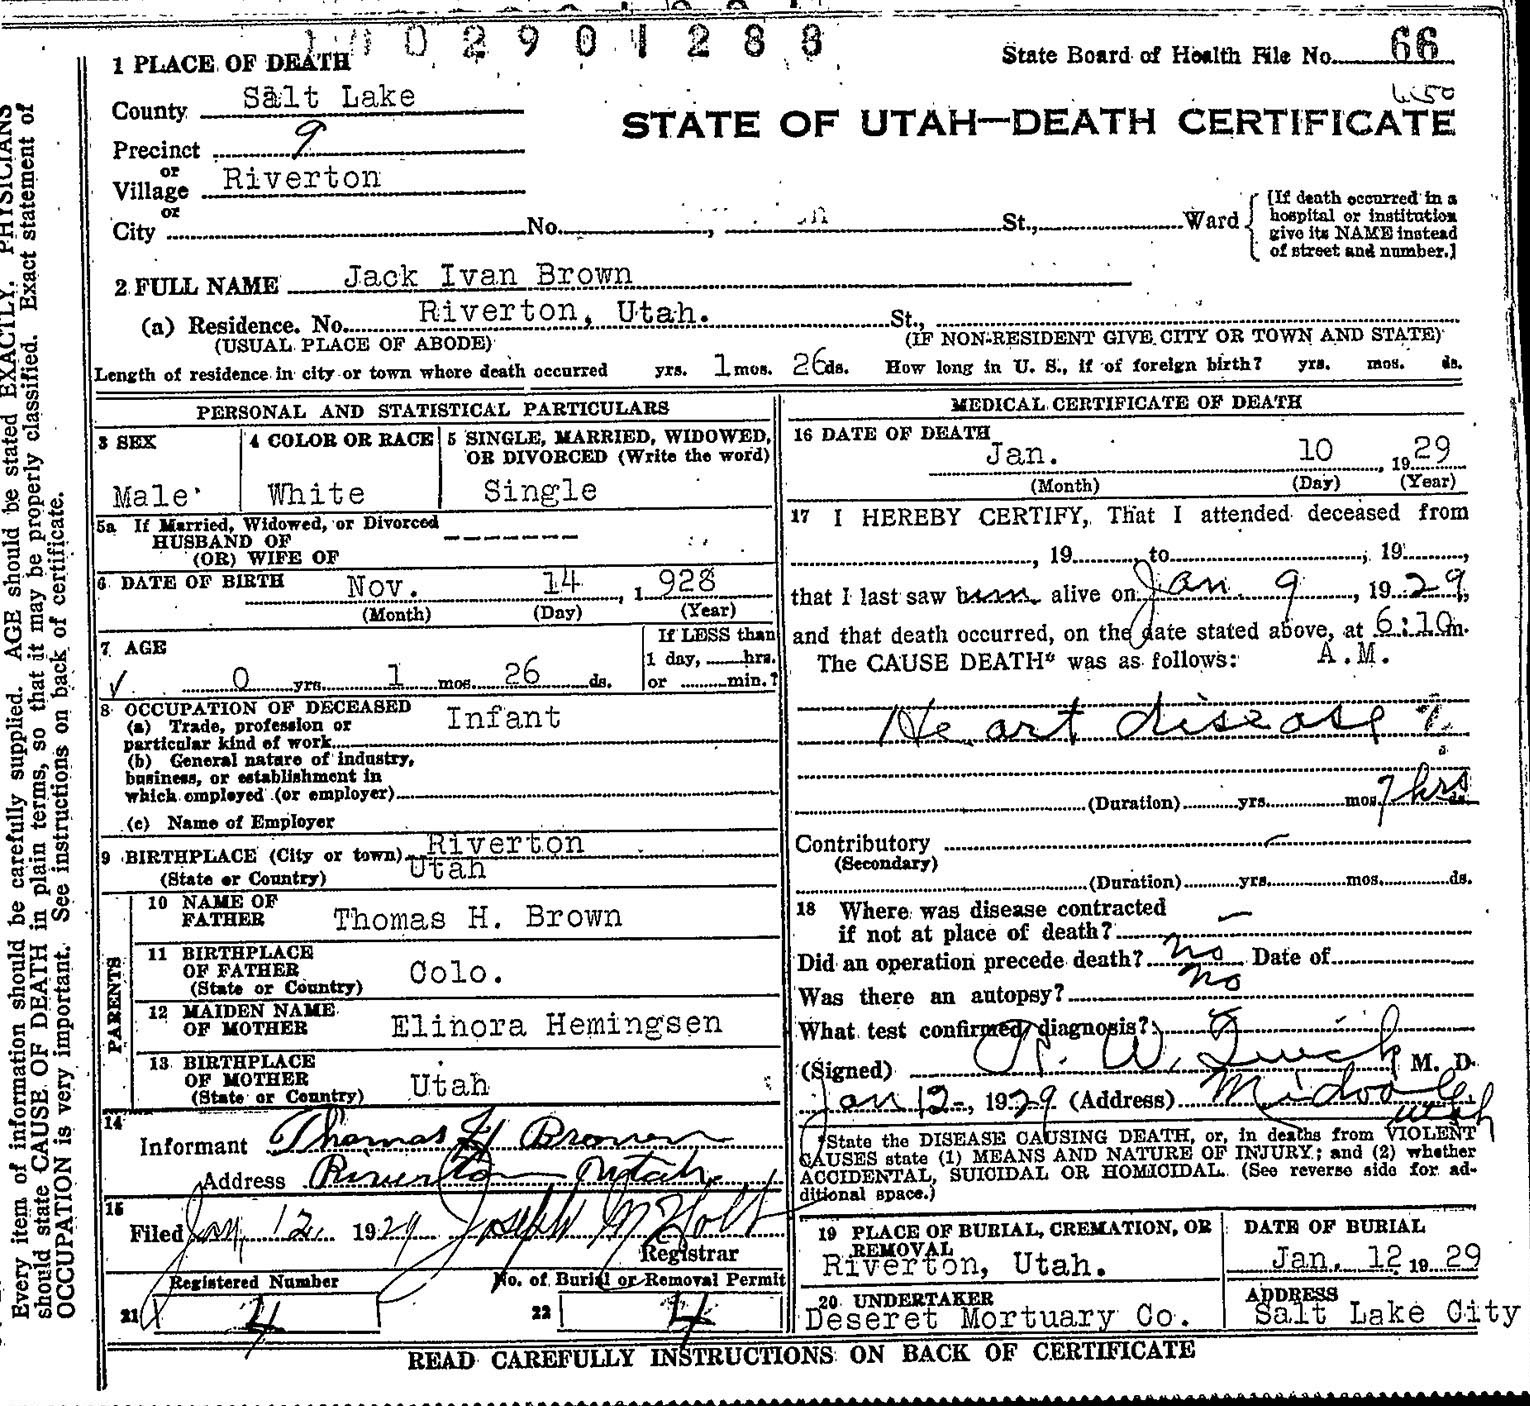 1002901288
State Board of Health File No. 66
1 PLACE OF DEATH
County Salt Lake
STATE OF UTAH—DEATH CERTIFICATE
Precinct 9
or
Village Riverton
or
City No. , St., Ward
[If death occurred in a
hospital or institution
give its NAME instead
of street and number.]
2 FULL NAME Jack Ivan Brown
(a) Residence. No. Riverton, Utah. St.,
(USUAL PLACE OF ABODE) (IF NON-RESIDENT GIVE CITY OR TOWN AND STATE)
Length of residence in city or town where death occurred yrs. 1 mos. 26 ds. How long in U. S., if of foreign birth? yrs. mos. ds.
PERSONAL AND STATISTICAL PARTICULARS
3 SEX
Male
4 COLOR OR RACE
White
5 SINGLE, MARRIED, WIDOWED,
OR DIVORCED (Write the word)
Single
5a If Married, Widowed, or Divorced
HUSBAND OF
(OR) WIFE OF -------
6 DATE OF BIRTH Nov. 14, 1928
(Month) (Day) (Year)
7 AGE
0 yrs. 1 mos. 26 ds.
If LESS than
1 day, hrs.
or min.?
8 OCCUPATION OF DECEASED Infant
(a) Trade, profession or
particular kind of work
(b) General nature of industry,
business, or establishment in
which employed (or employer)
(c) Name of Employer
9 BIRTHPLACE (City or town) Riverton
(State or Country) Utah
PARENTS
10 NAME OF
FATHER Thomas H. Brown
11 BIRTHPLACE
OF FATHER
(State or Country) Colo.
12 MAIDEN NAME
OF MOTHER Elinora Hemingsen
13 BIRTHPLACE
OF MOTHER
(State or Country) Utah
14
Informant Thomas H Brown
Address Riverton Utah
15
Filed Jan, 12, 1929 Joseph M Holt
Registrar
Registered Number
21 4
No. of Burial or Removal Permit
22 4
MEDICAL CERTIFICATE OF DEATH
16 DATE OF DEATH
Jan. 10, 1929
(Month) (Day) (Year)
17 I HEREBY CERTIFY, That I attended deceased from
, 19 to , 19 ,
that I last saw him alive on Jan 9, 1929,
and that death occurred, on the date stated above, at 6:10 m.
The CAUSE DEATH* was as follows: A.M.
Heart disease ?
(Duration) yrs. mos. 7 hrs ds.
Contributory –
(Secondary)
(Duration) yrs. mos. ds.
18 Where was disease contracted
if not at place of death? –
Did an operation precede death? no Date of
Was there an autopsy? no
What test confirmed diagnosis?
(Signed) M. D.
Jan 12, 1929 (Address) Midvale
Utah
*State the DISEASE CAUSING DEATH, or, in deaths from VIOLENT
CAUSES state (1) MEANS AND NATURE OF INJURY; and (2) whether
ACCIDENTAL, SUICIDAL OR HOMICIDAL. (See reverse side for ad-
ditional space.)
19 PLACE OF BURIAL, CREMATION, OR
REMOVAL
Riverton, Utah.
DATE OF BURIAL
Jan. 12 1929
20 UNDERTAKER
Deseret Mortuary Co.
ADDRESS
Salt Lake City
READ CAREFULLY INSTRUCTIONS ON BACK OF CERTIFICATE
Every item of information should be carefully supplied. AGE should be stated EXACTLY. PHYSICIANS
should state CAUSE OF DEATH in plain terms, so that it may be properly classified. Exact statement of
OCCUPATION is very important. See instructions on back of certificate.